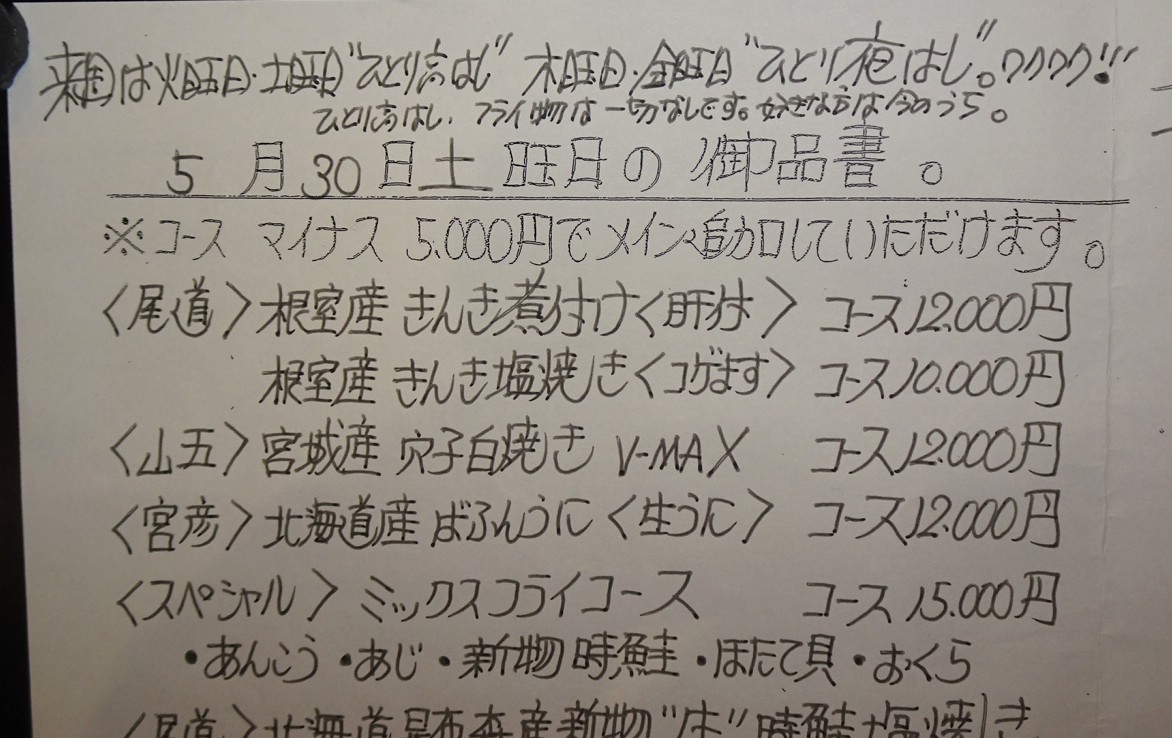 来週は火曜日・土曜日"ひとり高はし" 木曜日・金曜日"ひとり夜はし"。ワクワク!!!
ひとり高はし、フライ物は一切なしです。好きな方は今のうち。
5月30日土曜日の御品書。
※コース マイナス 5.000円でメイン追加していただけます。
〈尾道〉根室産 きんき煮付け〈肝付〉 コース12.000円
根室産 きんき塩焼き〈コゲます〉 コース10.000円
〈山五〉宮城産 穴子白焼き V-MAX コース12.000円
〈宮彦〉北海道産 ばふんうに〈生うに〉 コース12.000円
〈スペシャル〉ミックスフライコース コース15.000円
・あんこう・あじ・新物時鮭・ほたて貝・おくら
〈尾道〉北海道昆布森産新物"生"時鮭塩焼き